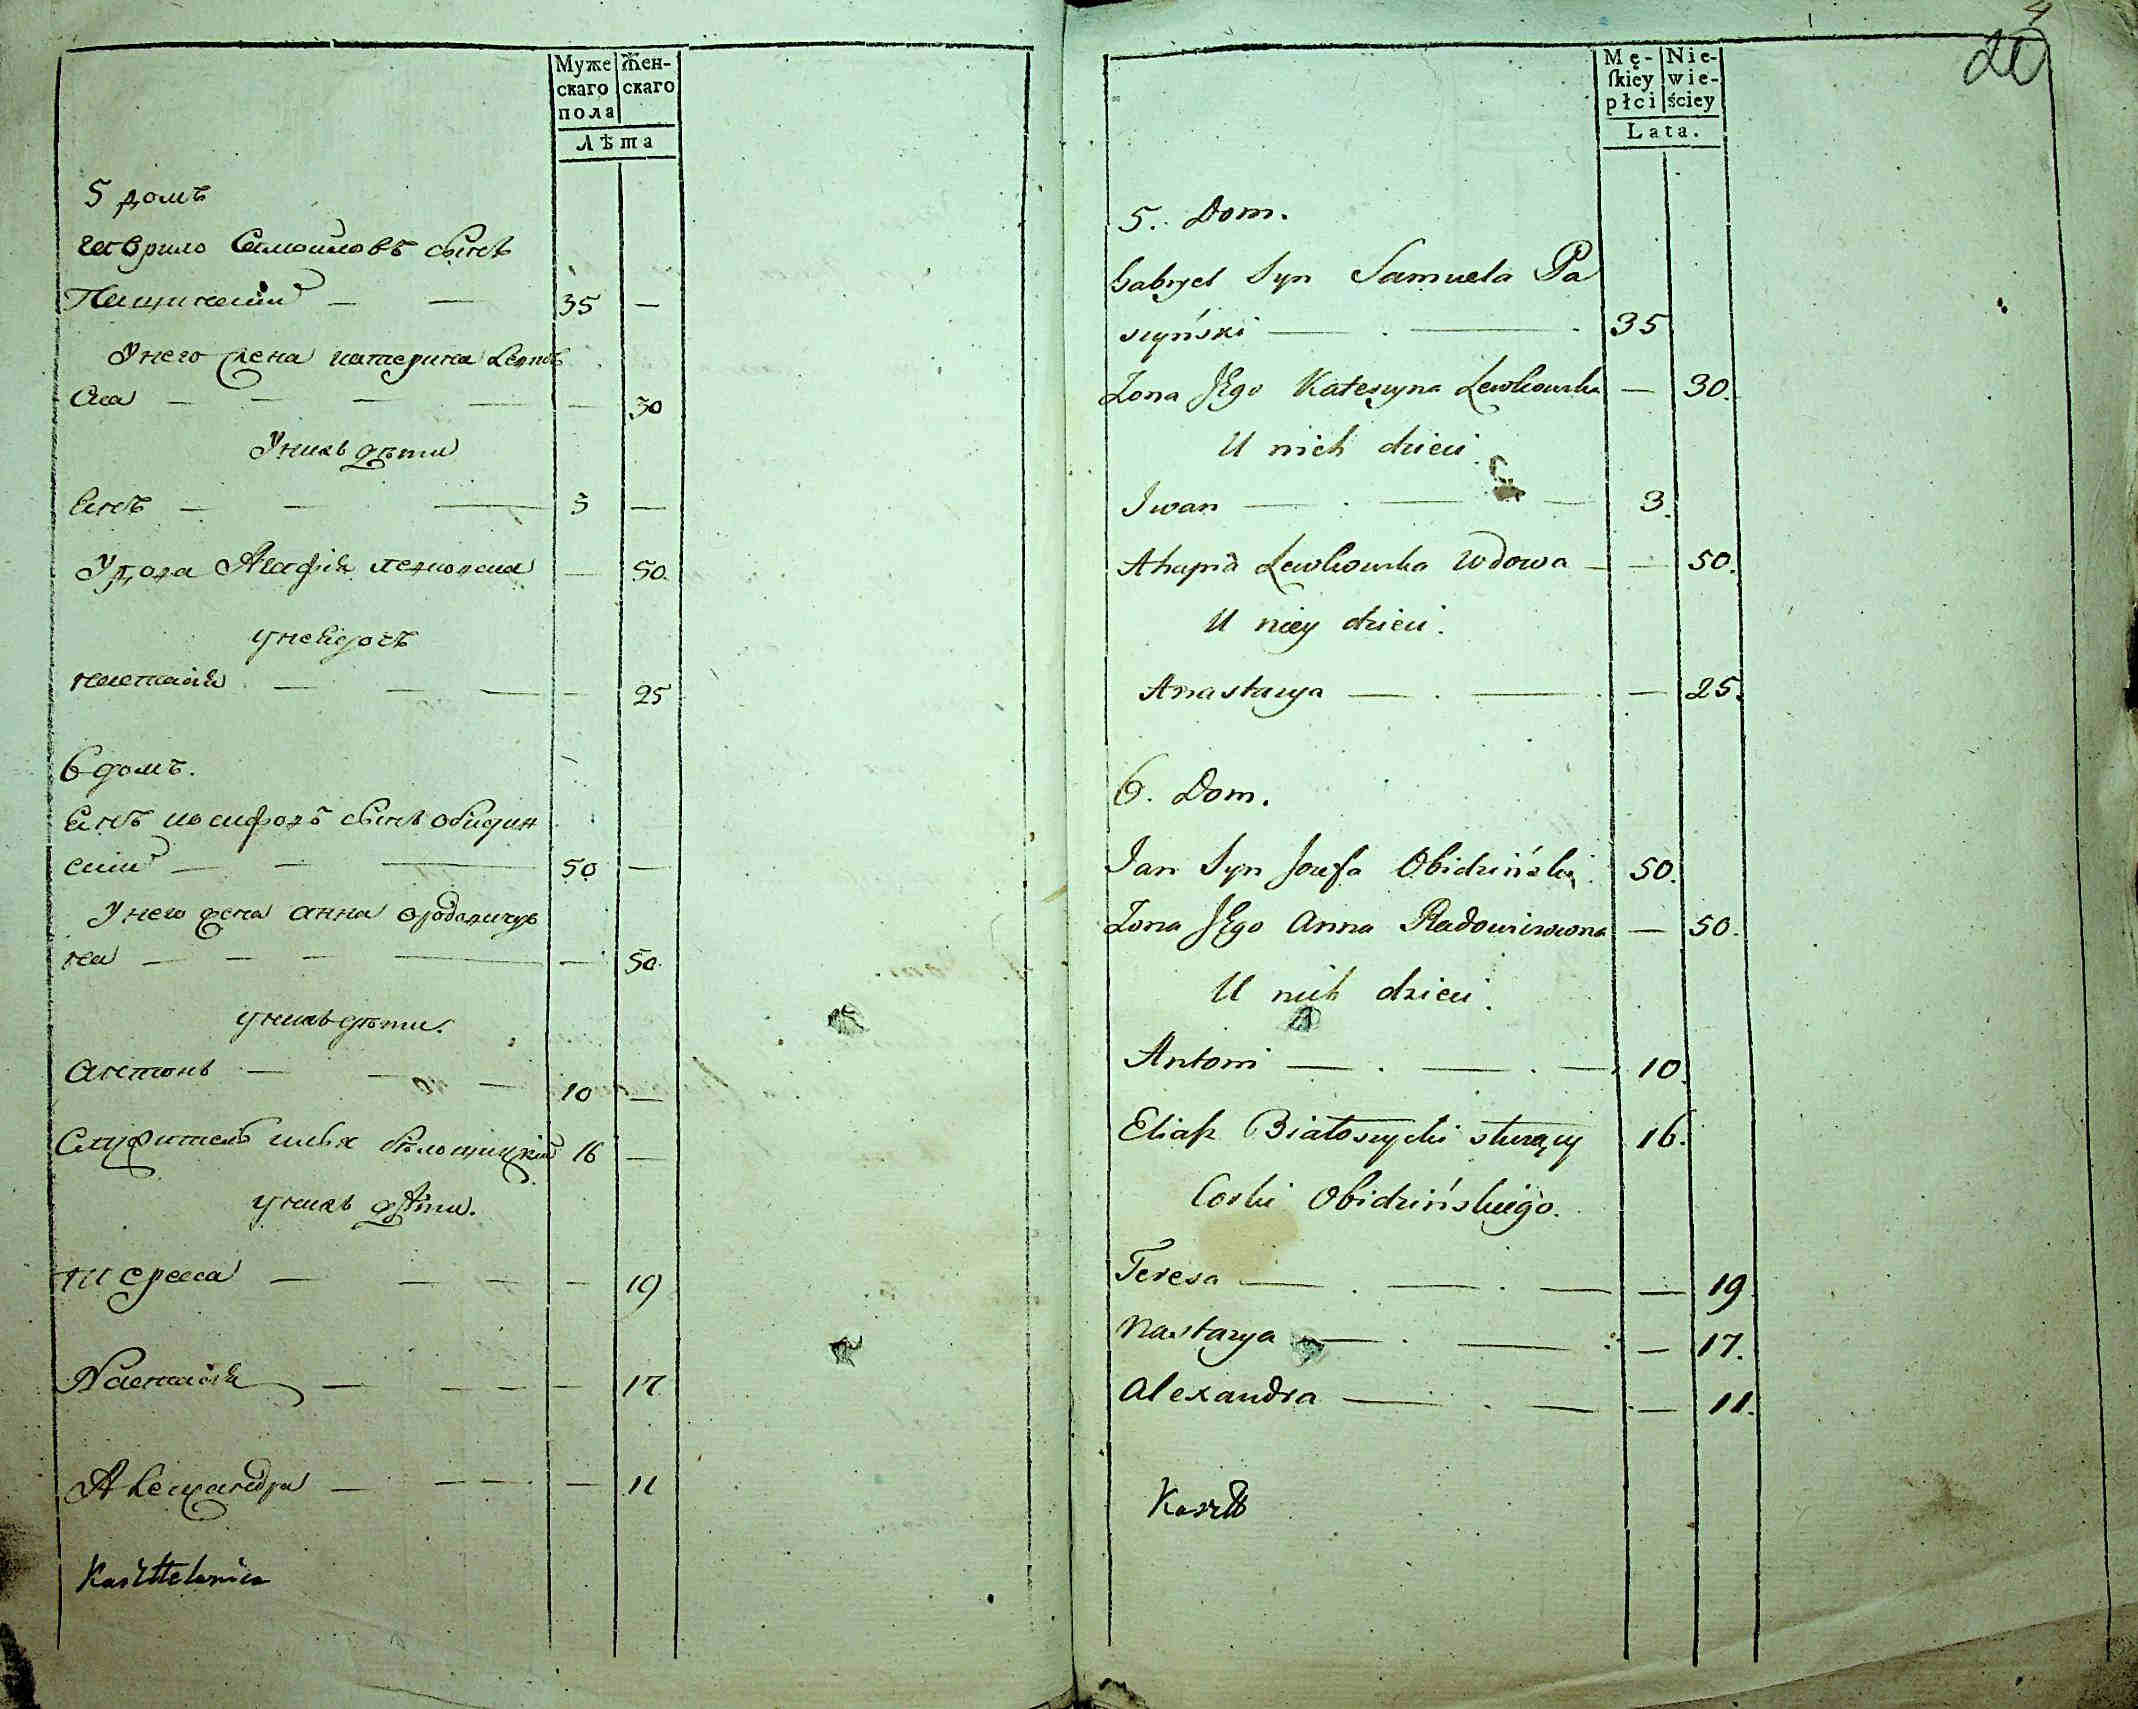 Муже
скаго
пола
Жен-
скаго
Лѣта
5 домъ
гаврило Самойловъ сынъ
Пащинский — — 35 —
У него жена катерина Левков
ска — — — — — 30
У нихъ дѣти
Янъ — — — 3 —
Удова Агафия левковска — 50.
у неи дочъ
настасия — — — — 25
6 домъ.
Янъ иосифовъ сынъ обидзин
ский — — — 50 —
У него жена анна
на — — — — — 50.
у нихъ дѣти.
антонъ — — — 10 —
Служитель илья бѣлощицкий 16 —
у нихъ дѣти.
тереса — — — — 19
Настасия — — — — — 17
Александра — — — — 11
4
20
Mę-
ſkiey
płci
Nie-
wie-
ściey
Lata.
5. Dom.
Gabryel Syn Samuela Pa
szyński — . — . 35
Zona JEgo Katerzyna Lewkowska — 30.
U nich dzieci.
Iwan — . — — 3.
Ahapia Lewkowska Wdowa — — 50.
U niey dzieci.
Anastazya — . — . — 25.
6. Dom.
Jan Syn Jozefa Obidziński. 50.
Zona JEgo Anna — 50.
U nich dzieci.
Antoni — . — . — 10.
Eliasz Białoszycki służący 16.
Corki Obidzińskiego.
Teresa — . — . — — 19.
Nastazya — . — : — 17.
Alexandra — . — . — 11.